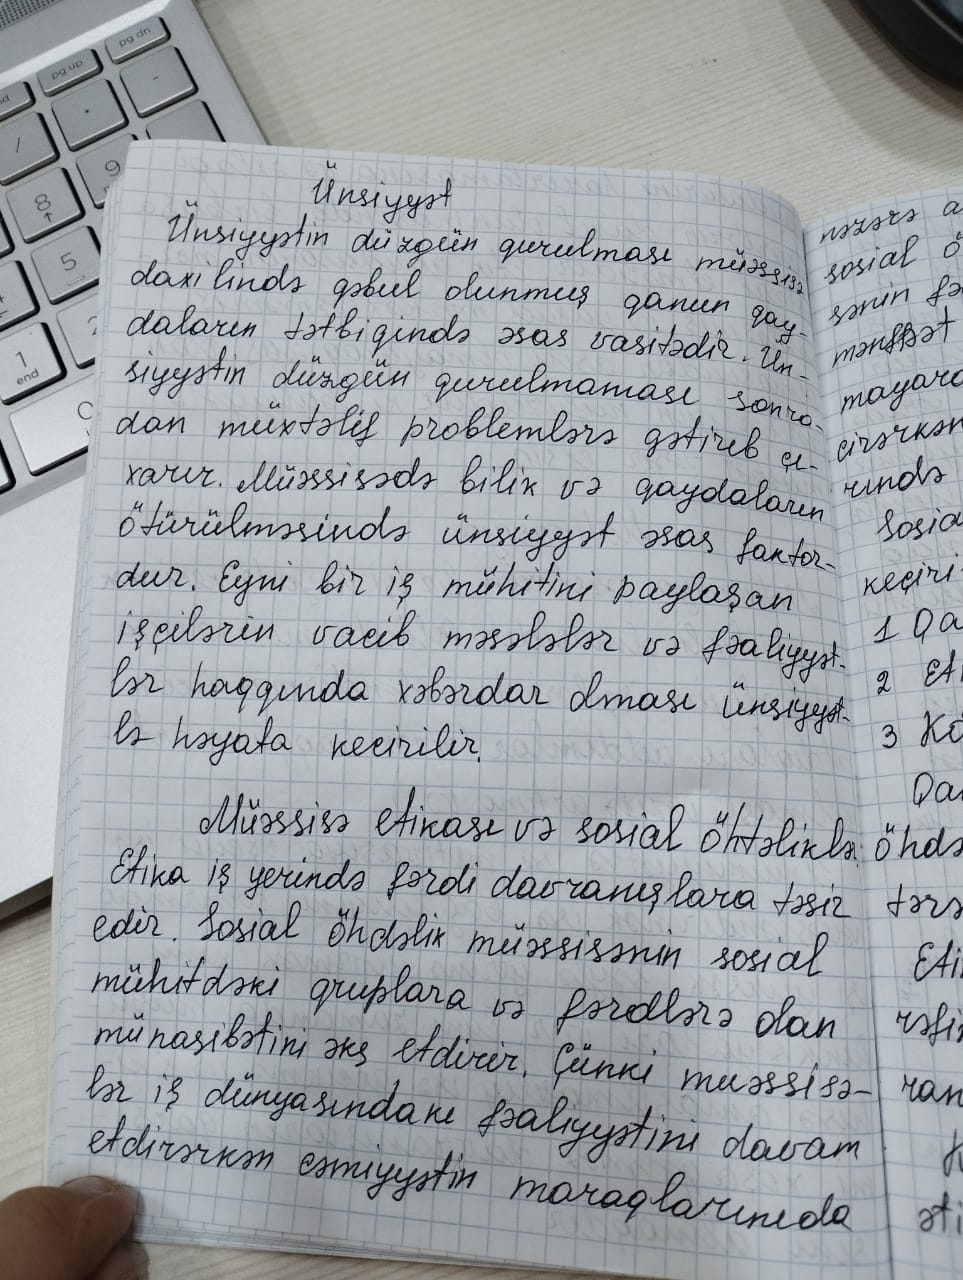 Ünsiyyət
Ünsiyyətin düzgün qurulması müəssisə
daxilində qəbul olunmuş qanun qay-
daların tətbiqində əsas vasitədir. Ün-
siyyətin düzgün qurulmaması sonra-
dan müxtəlif problemlərə gətirib çı-
xarır. Müəssisədə bilik və qaydaların
ötürülməsində ünsiyyət əsas faktor-
dur. Eyni bir iş mühitini paylaşan
işçilərin vacib məsələlər və fəaliyyət-
lər haqqında xəbərdar olması ünsiyyət-
lə həyata keçirilir.
Müəssisə etikası və sosial öhtəliklə
Etika iş yerində fərdi davranışlara təsir
edir. Sosial öhdəlik müəssisənin sosial
mühitdəki qruplara və fərdlərə olan
münasibətini əks etdirir. Çünki muəssisə-
lər iş dünyasındakı fəaliyyətini davam
etdirərkən cəmiyyətin maraqlarınıda
nəzərə a
sosial ö
sənin fə
mənfəət
mayara
cirərkən
rında
Sosia
keçiri
1 Qa
2 Eti
3 Kö
Qa
öhdə
tərə
Eti
rəfi
ran
əti
pg dn
pg up
end
/
*
-
8
9
5
2
1
end
0